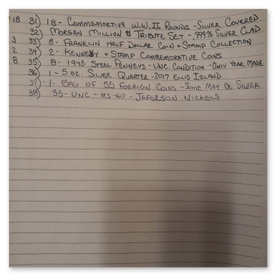 18 31) 18- Commemorative W.W. II Rounds - Silver Covered
32) Morgan Million $ Tribute Set - .999% Silver Clad
33) 8- Franklin Half Dollar Coin + Stamp Collection
2 34) 2- Kennedy + Stamp Commemorative Coins
8 35) 8- 1943 Steel Penneys - Unc. Condition - Only Year Made
36) 1- 5 oz. Silver Quarter - 2017 Ellis Island
37) 1- Bag of 55 Foreign Coins - Some May Be Silver
38) 35- UNC - MS-60 - Jefferson Nickels